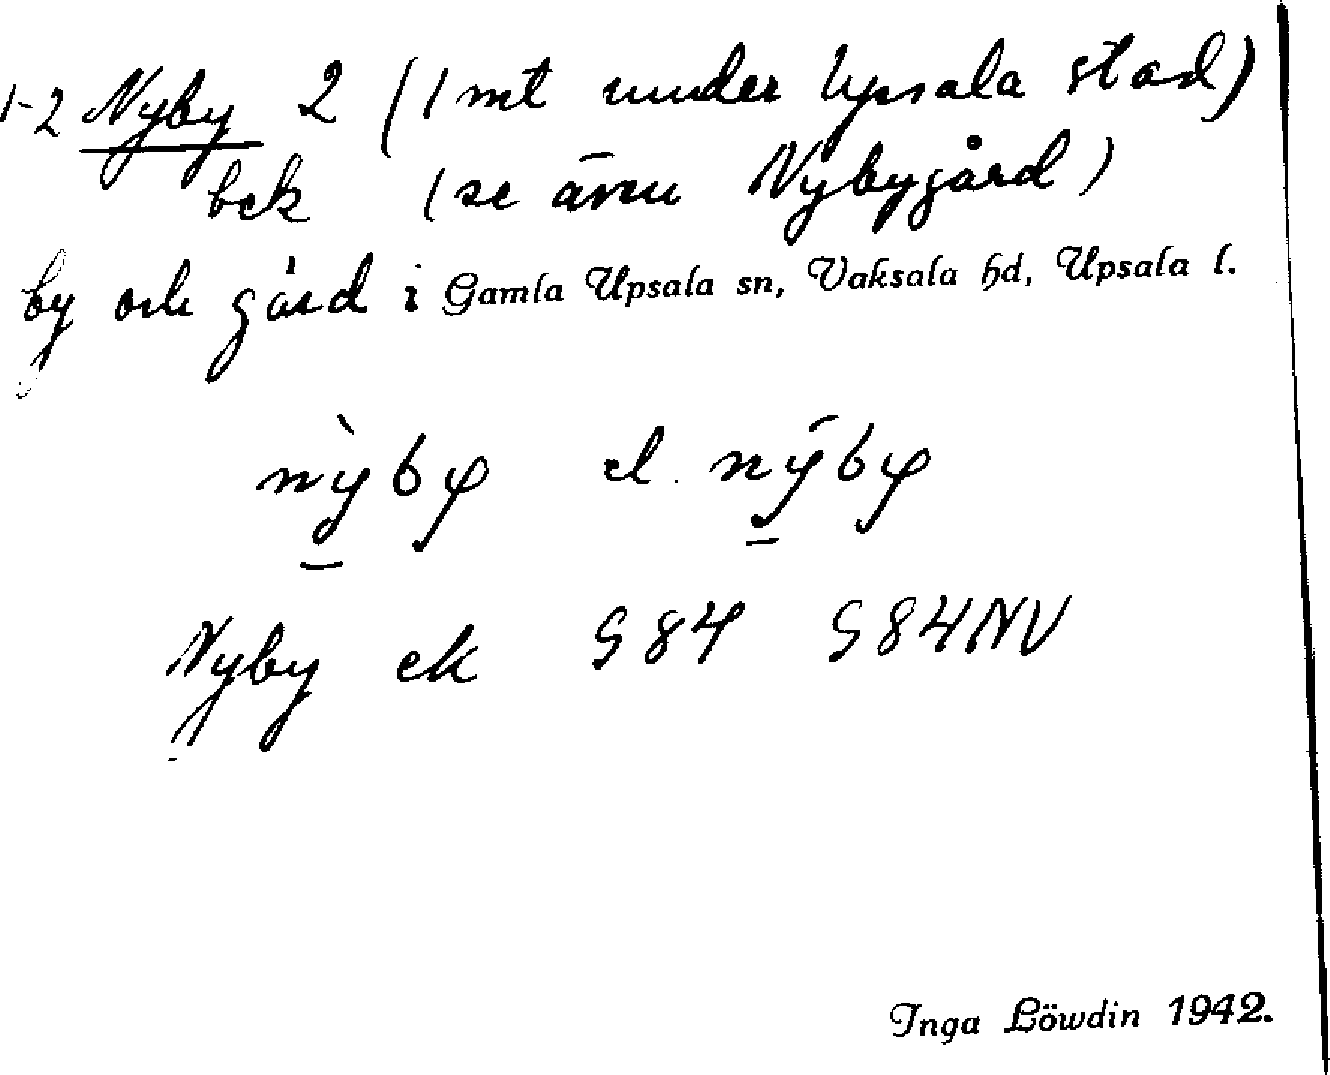 1-2 Nyby 2 (1 mt under Upsala stad)
bek (se även Nybygård)
by och gård i Gamla Upsala sn, Vaksala hd, Upsala l.
nỳby el. nȳby
Nyby ek 984 984NV
Inga Löwdin 1942.